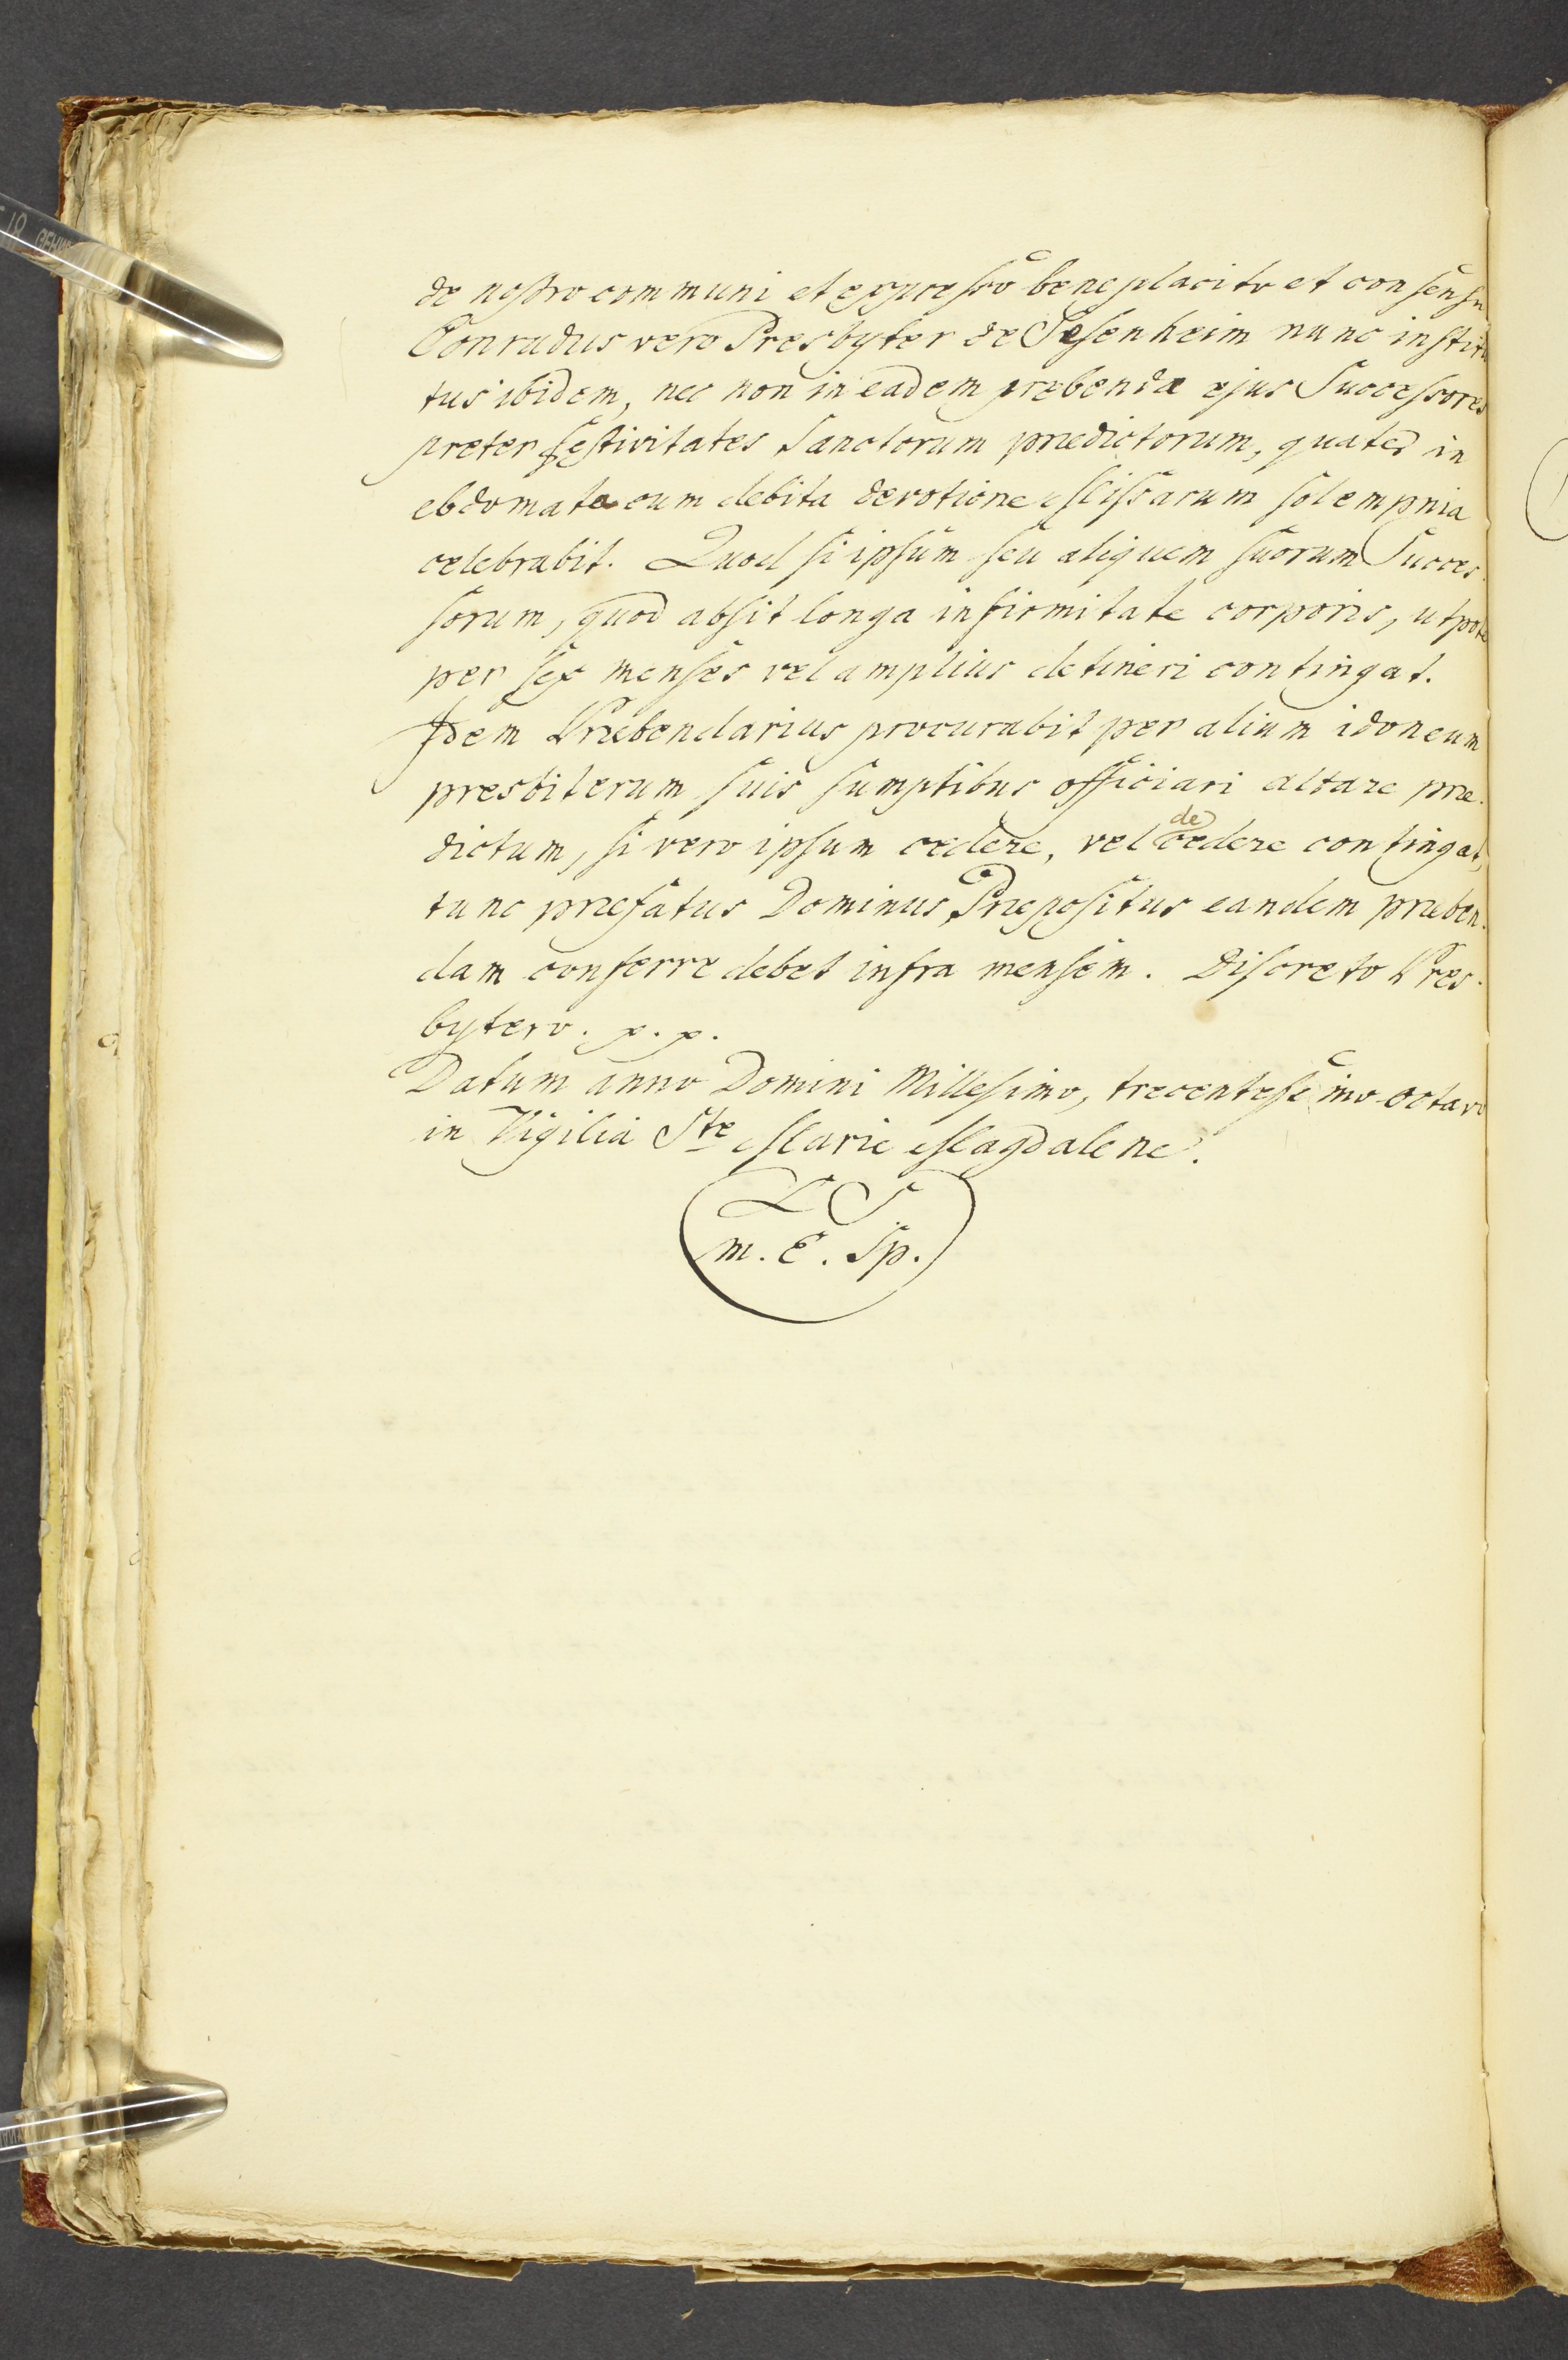 de nostro communi et expresso beneplacito et consensu
Conradus vero Presbyter de Sesenheim nunc institu
tus ibidem, nec non in eadem præbenda ejus Successores
preter festivitates Sanctorum prædictorum, quater in
ebdomata cum debita devotione Missarum solempnia
celebrabit. Quod si ipsum seu aliquem suorum Succes-
sorum, quod absit longa infirmitate corporis, utpote
per sex menses vel amplius detineri contingat.
Idem Præbendarius procurabit per alium idoneum
presbiterum suis sumptibus officiari altare præ-
dictum, si vero ipsum cedere, vel decedere contingat,
tunc præfatus Dominus Præpositus eandem præben-
dam conferre debet infra mensem. Discreto Pres-
bytero. p. p.
Datum anno Domini Millesimo, trecentesimo octavo
in Vigilia Ste Marie Magdalene.
L S
m. E. Sp.